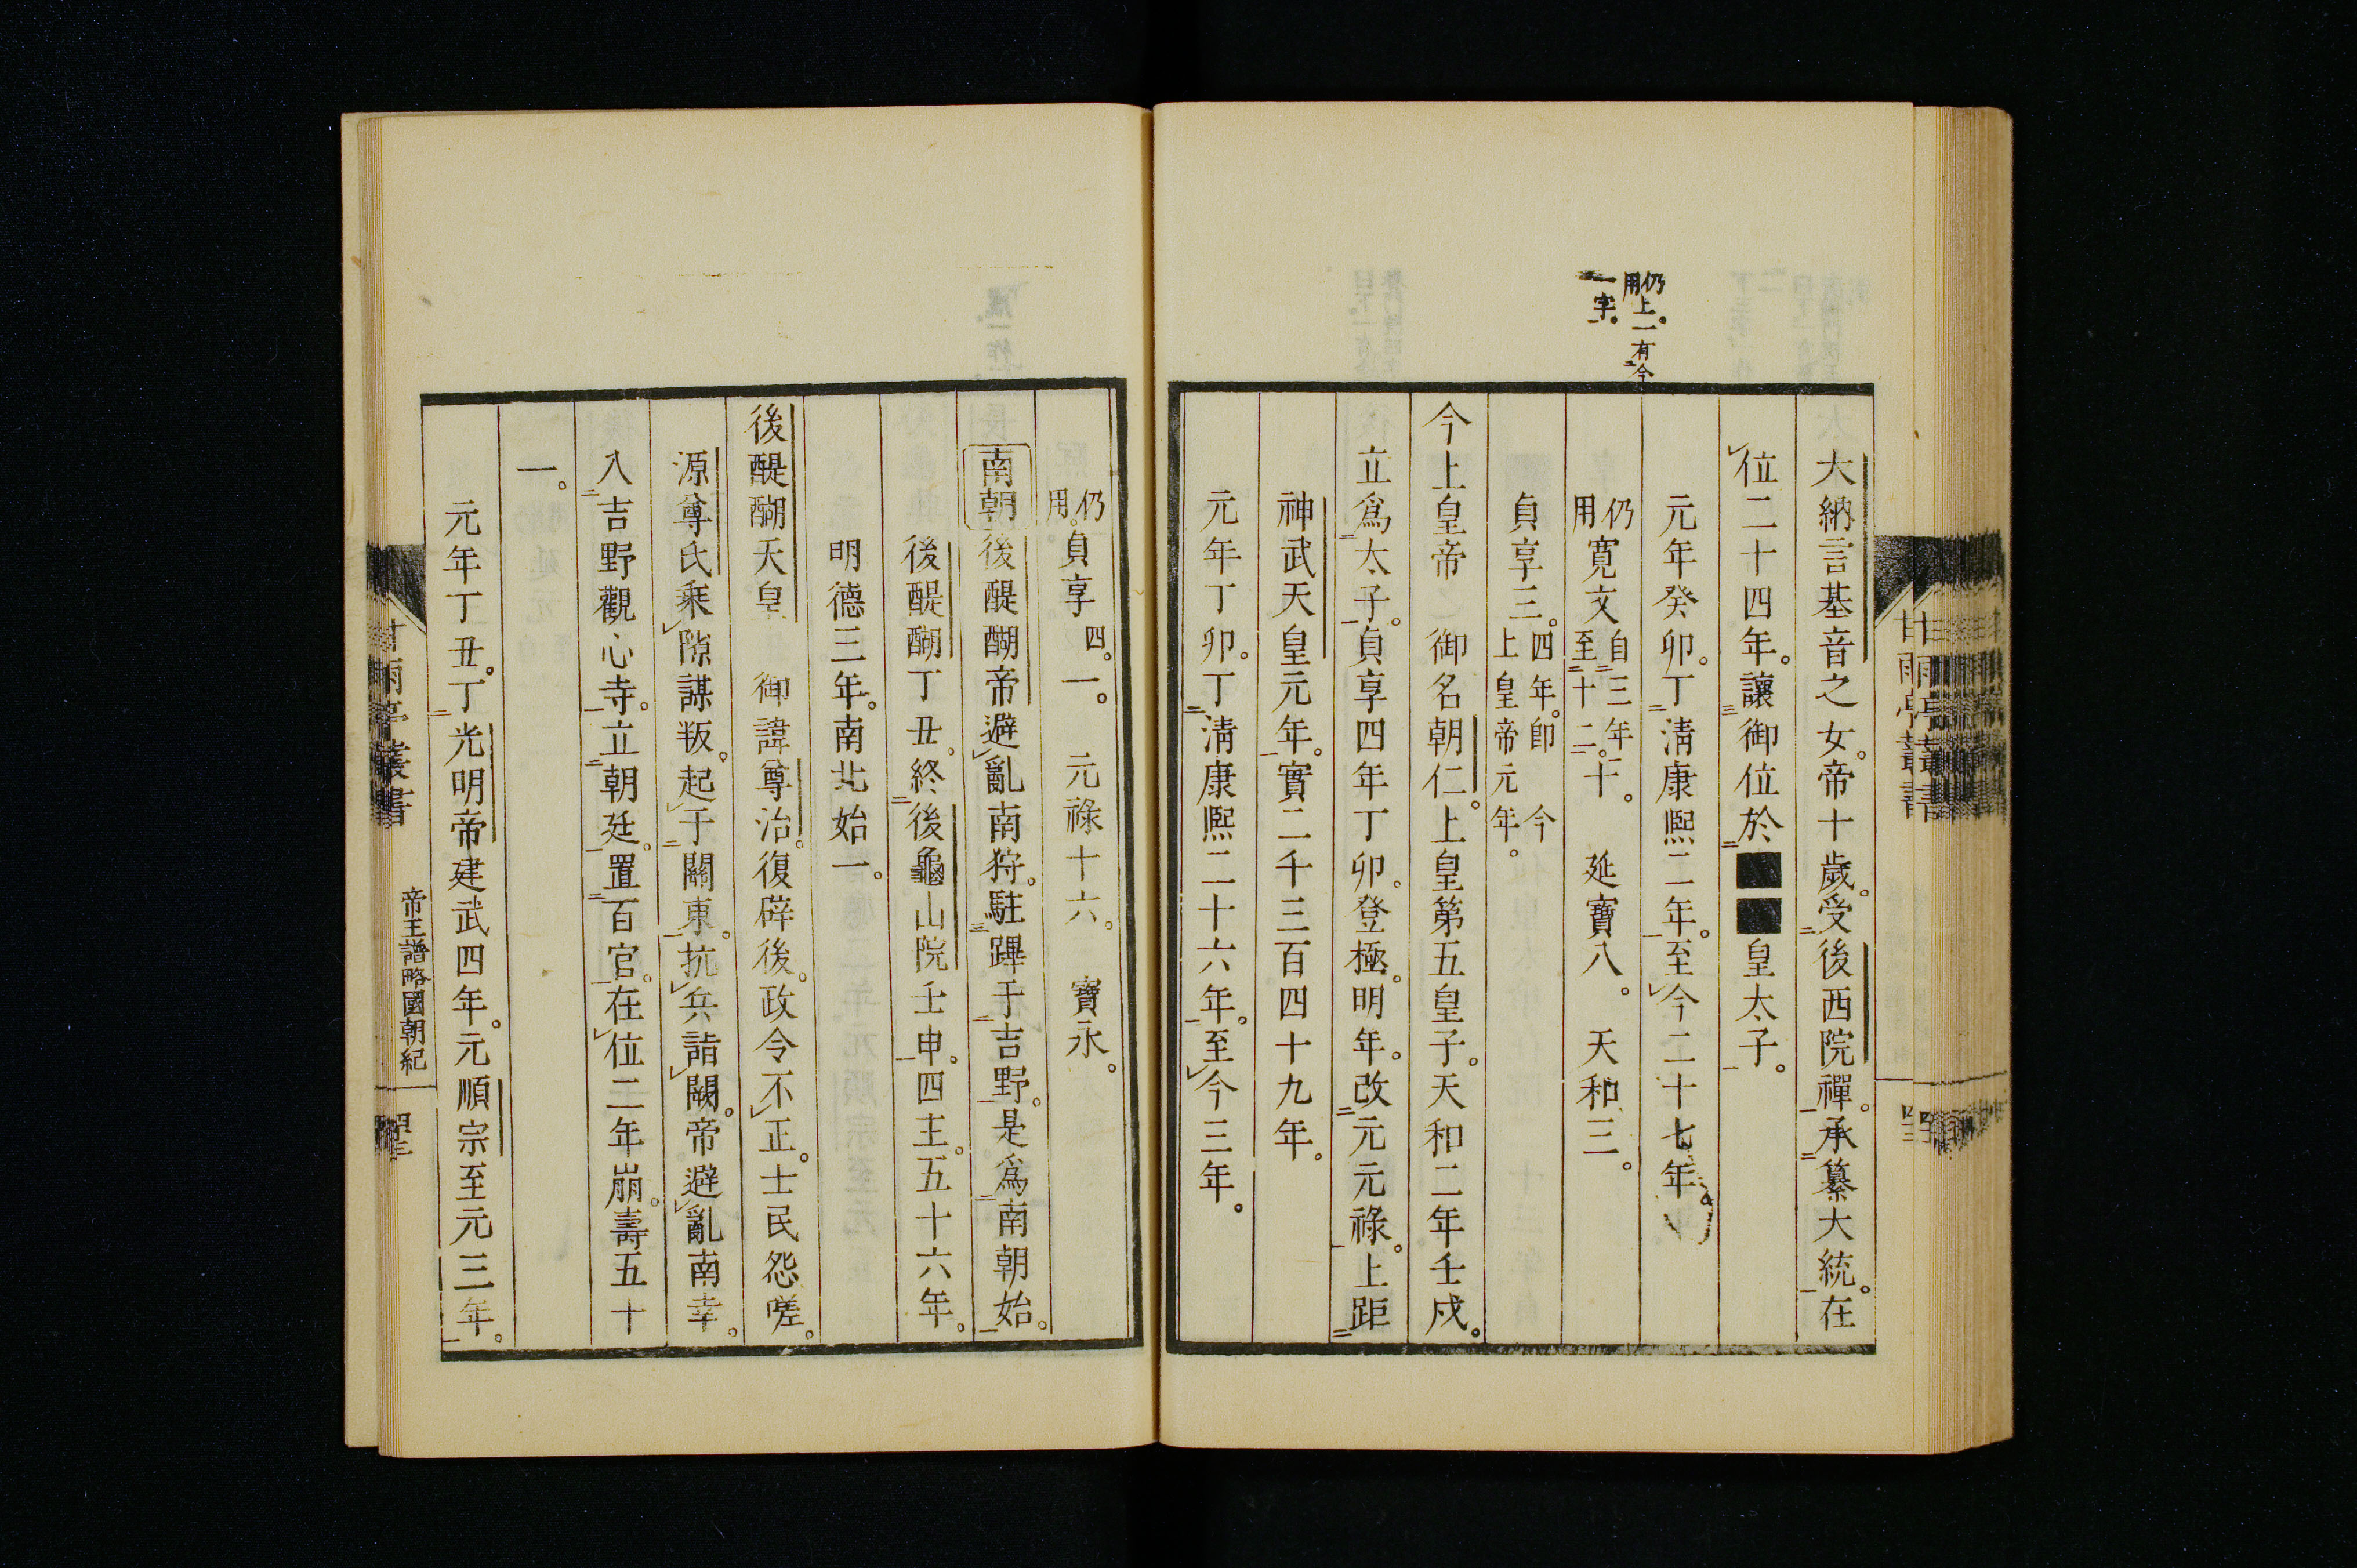 仍上一有今
用
一字。
大納言基音之女。帝十歲。受後西院禪。承纂大統。在
位二十四年。讓御位於■■皇太子。
元年癸卯。丁清康熙二年。至今二十七年。
仍用寬文自三年至十二。十。　延寶八。　天和三。
貞享三。四年。即今上皇帝元年。
今上皇帝　御名朝仁。上皇第五皇子。天和二年壬戌。
立爲太子。貞享四年丁卯。登極。明年。改元元祿。上距
神武天皇元年。實二千三百四十九年。
元年丁卯。丁清康熙二十六年。至今三年。
甘雨亭叢書
仍用。貞享四。一。　元祿十六。　寶永。
南朝後醍醐帝避亂南狩。駐蹕于吉野。是爲南朝始。
後醍醐丁丑。終後龜山院壬申。四主。五十六年。
明德三年。南北始一。
後醍醐天皇　御諱尊治。復辟後。政令不正。士民怨嗟。
源尊氏乘隙謀叛。起于關東。抗兵詣闕。帝避亂南幸。
入吉野觀心寺。立朝廷。置百官。在位二年崩。壽五十
一。
元年丁丑。丁光明帝建武四年。元順宗至元三年。
甘雨亭叢書
帝王譜略國朝紀